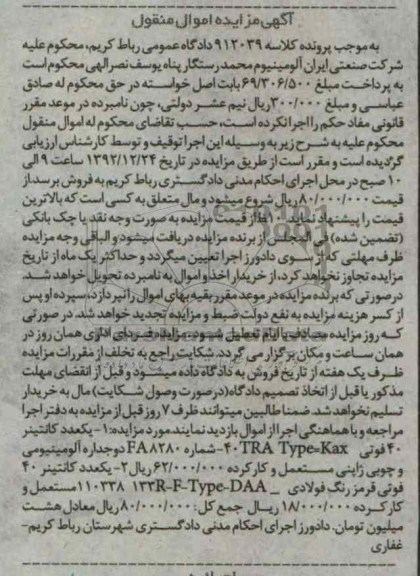 آگهی مزایده اموال منقول
به موجب پرونده کلاسه ۹۱۲۰۳۹ دادگاه عمومی رباط کریم، محکوم علیه
شرکت صنعتی ایران آلومینیوم محمد رستگار پناه یوسف نصرالهی محکوم است
به پرداخت مبلغ ۶۹/۳۰۶/۵۰۰ بابت اصل خواسته در حق محکوم له صادق
عباسی و مبلغ ۳۰۰/۰۰۰ ریال نیم عشر دولتی، چون نامبرده در موعد مقرر
قانونی مفاد حکم را اجرا نکرده است، حسب تقاضای محکوم له اموال منقول
محکوم علیه به شرح زیر به وسیله این اجرا توقیف و توسط کارشناس ارزیابی
گردیده است و مقرر است از طریق مزایده در تاریخ ۱۳۹۲/۱۲/۲۴ ساعت ۹ الی
۱۰ صبح در محل اجرای احکام مدنی دادگستری رباط کریم به فروش برسد از
قیمت ۸۰/۰۰۰/۰۰۰ ریال شروع میشود و مال متعلق به کسی است که بالاترین
قیمت را پیشنهاد نماید. ۱۰٪ از قیمت مزایده به صورت وجه نقد یا چک بانکی
(تضمین شده) فی المجلس از برنده مزایده دریافت میشود و الباقی وجه مزایده
ظرف مهلتی که از سوی دادورز اجرا تعیین میگردد و حداکثر یک ماه از تاریخ
مزایده تجاوز نخواهد کرد، از خریدار اخذ و اموال به نامبرده تحویل خواهد شد.
در صورتی که برنده مزایده در موعد مقرر بقیه بهای اموال را نپردازد، سپرده او پس
از کسر هزینه مزایده به نفع دولت ضبط و مزایده تجدید خواهد شد. در صورتی
که روز مزایده مصادف با ایام تعطیل شود، مزایده فردای اداری همان روز در
همان ساعت و مکان برگزار می گردد. شکایت راجع به تخلف از مقررات مزایده
ظرف یک هفته از تاریخ فروش به دادگاه داده میشود و قبل از انقضای مهلت
مذکور یا قبل از اتخاذ تصمیم دادگاه (در صورت وصول شکایت) مال به خریدار
تسلیم نخواهد شد. ضمنا طالبین میتوانند ظرف ۷ روز قبل از مزایده به دفتر اجرا
مراجعه و با هماهنگی اجرا از اموال بازدید نمایند. مورد مزایده: ۱- یکعدد کانتینر
۴۰ فوتی ۴۰-TRA Type=Kax شماره FA۸۲۸۰ دوجداره آلومینیومی
و چوبی ژاپنی مستعمل و کارکرده ۶۲/۰۰۰/۰۰۰ ریال ۲- یکعدد کانتینر ۴۰
فوتی قرمز رنگ فولادی _ ۱۳۳R-F-Type-DAA ۱۱۰۳۳۸ مستعمل و
کارکرده ۱۸/۰۰۰/۰۰۰ ریال جمع کل: ۸۰/۰۰۰/۰۰۰ ریال معادل هشت
میلیون تومان. دادورز اجرای احکام مدنی دادگستری شهرستان رباط کریم-
غفاری